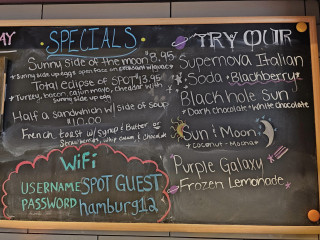 AY
SPECIALS
Sunny side of the moon $8.95
Sunny side up eggs open face on croissant w/
Total eclipse of SPOT $13.95
Turkey, bacon, cajun mayo, cheddar with
Sunny side up egg
Half a sandwich w/ side of soup
$10.00
French toast w/ syrup & Butter or
Strawberries, whip cream & chocolate
WiFi
USERNAME SPOT GUEST
PASSWORD hamburg12
TRY OUR
Supernova Italian
Soda Blackberry
Black hole Sun
Dark chocolate White Chocolate
Sun & Moon
Coconut - Mocha
Purple Galaxy
Frozen Lemonade